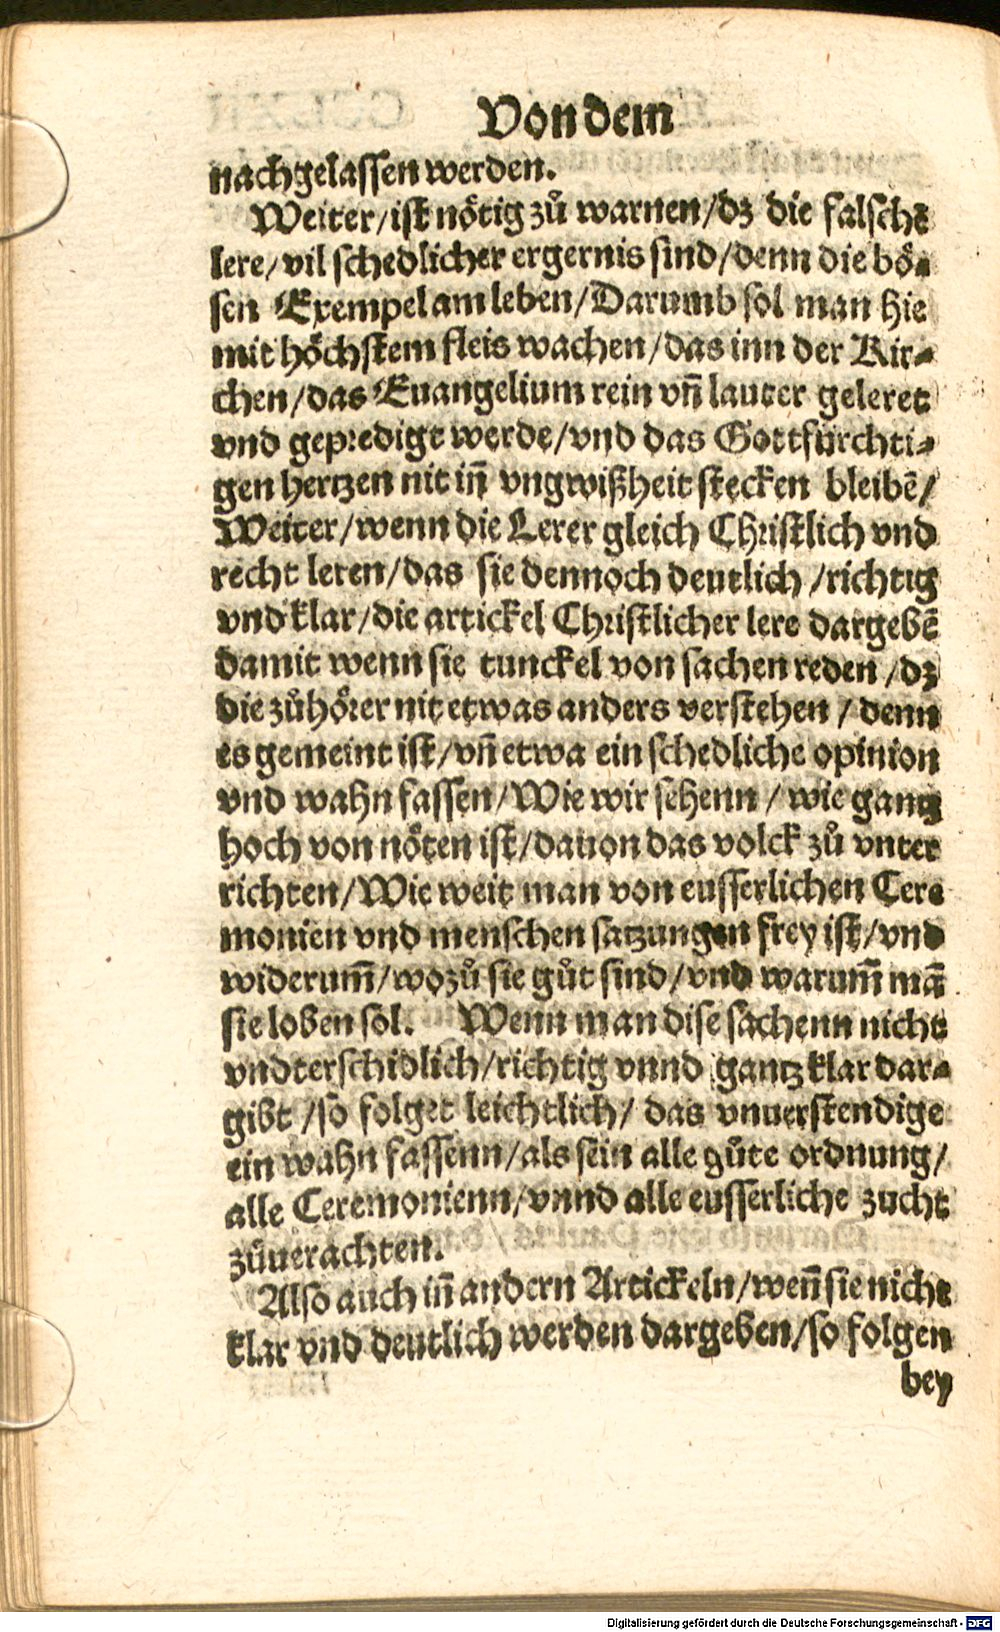 Von dem
nachgelassen werden.
Weiter/ist nötig zů warnen/dz die falschē
lere/vil schedlicher ergernis sind/denn die bö-
sen Exempel am leben/Darumb sol man hie
mit höchstem fleis wachen/das inn der Kir-
chen/das Euangelium rein vn̄ lauter geleret
vnd gepredigt werde/vnd das Gottfürchti-
gen hertzen nit in̄ vngwißheit stecken bleibē/
Weiter/wenn die Lerer gleich Christlich vnd
recht leren/das sie dennoch deutlich/richtig
vnd klar/die artickel Christlicher lere dargebē
damit wenn sie tunckel von sachen reden/dz
die zůhörer nit etwas anders verstehen/denn
es gemeint ist/vn̄ etwa ein schedliche opinion
vnd wahn fassen/Wie wir sehenn/wie gantz
hoch von nöten ist/dauon das volck zů vnter
richten/Wie weit man von eusserlichen Cere
monien vnd menschen satzungen frey ist/vnd
widerum̄/wozů sie gůt sind/vnd warum̄ mā
sie loben sol. Wenn man dise sachenn nicht
vndterschidlich/richtig vnnd gantz klar dar-
gibt/so folget leichtlich/das vnuerstendige
ein wahn fassenn/als sein alle gůte ordnung/
alle Ceremonienn/vnnd alle eusserliche zucht
zůuerachten.
Also auch in̄ andern Artickeln/wen̄ sie nicht
klar vnd deutlich werden dargeben/so folgen
bey
Digitalisierung gefördert durch die Deutsche Forschungsgemeinschaft - DFG